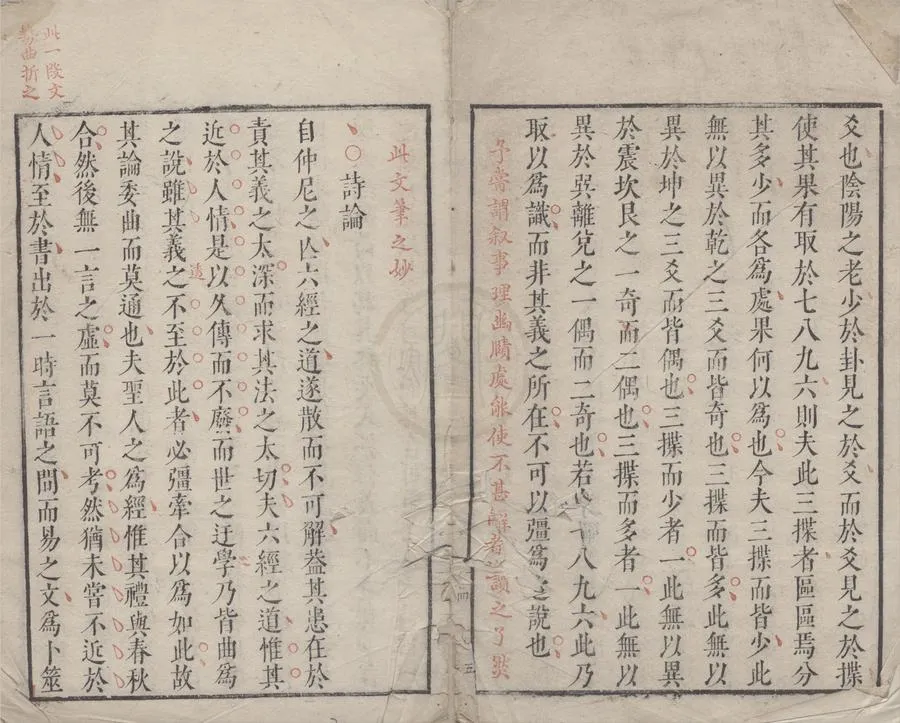 爻也陰陽之老少於卦見之於爻而於爻見之於揲
使其果有取於七八九六則夫此三揲者區區焉分
其多少而各爲處果何以爲也今夫三揲而皆少此
無以異於乾之三爻而皆奇也三揲而皆多此無以
異於坤之三爻而皆偶也三揲而少者一此無以異
於震坎艮之一奇而二偶也三揲而多者一此無以
異於巽離兌之一偶而二奇也若七八九六此乃
取以爲識而非其義之所在不可以彊爲之說也
予嘗謂叙事理幽賾處能使不甚解者讀之了然
此文筆之妙
詩論
自仲尼之亡六經之道遂散而不可解葢其患在於
責其義之太深而求其法之太切夫六經之道惟其
近於人情是以久傳而不廢而世之迂學乃皆曲爲
之說雖其義之不至於此者必彊牽合以爲如此故
其論委曲而莫通也夫聖人之爲經惟其禮與春秋
合然後無一言之虛而莫不可考然猶未嘗不近於
人情至於書出於一時言語之間而易之文爲卜筮
此一段文
勢曲折之